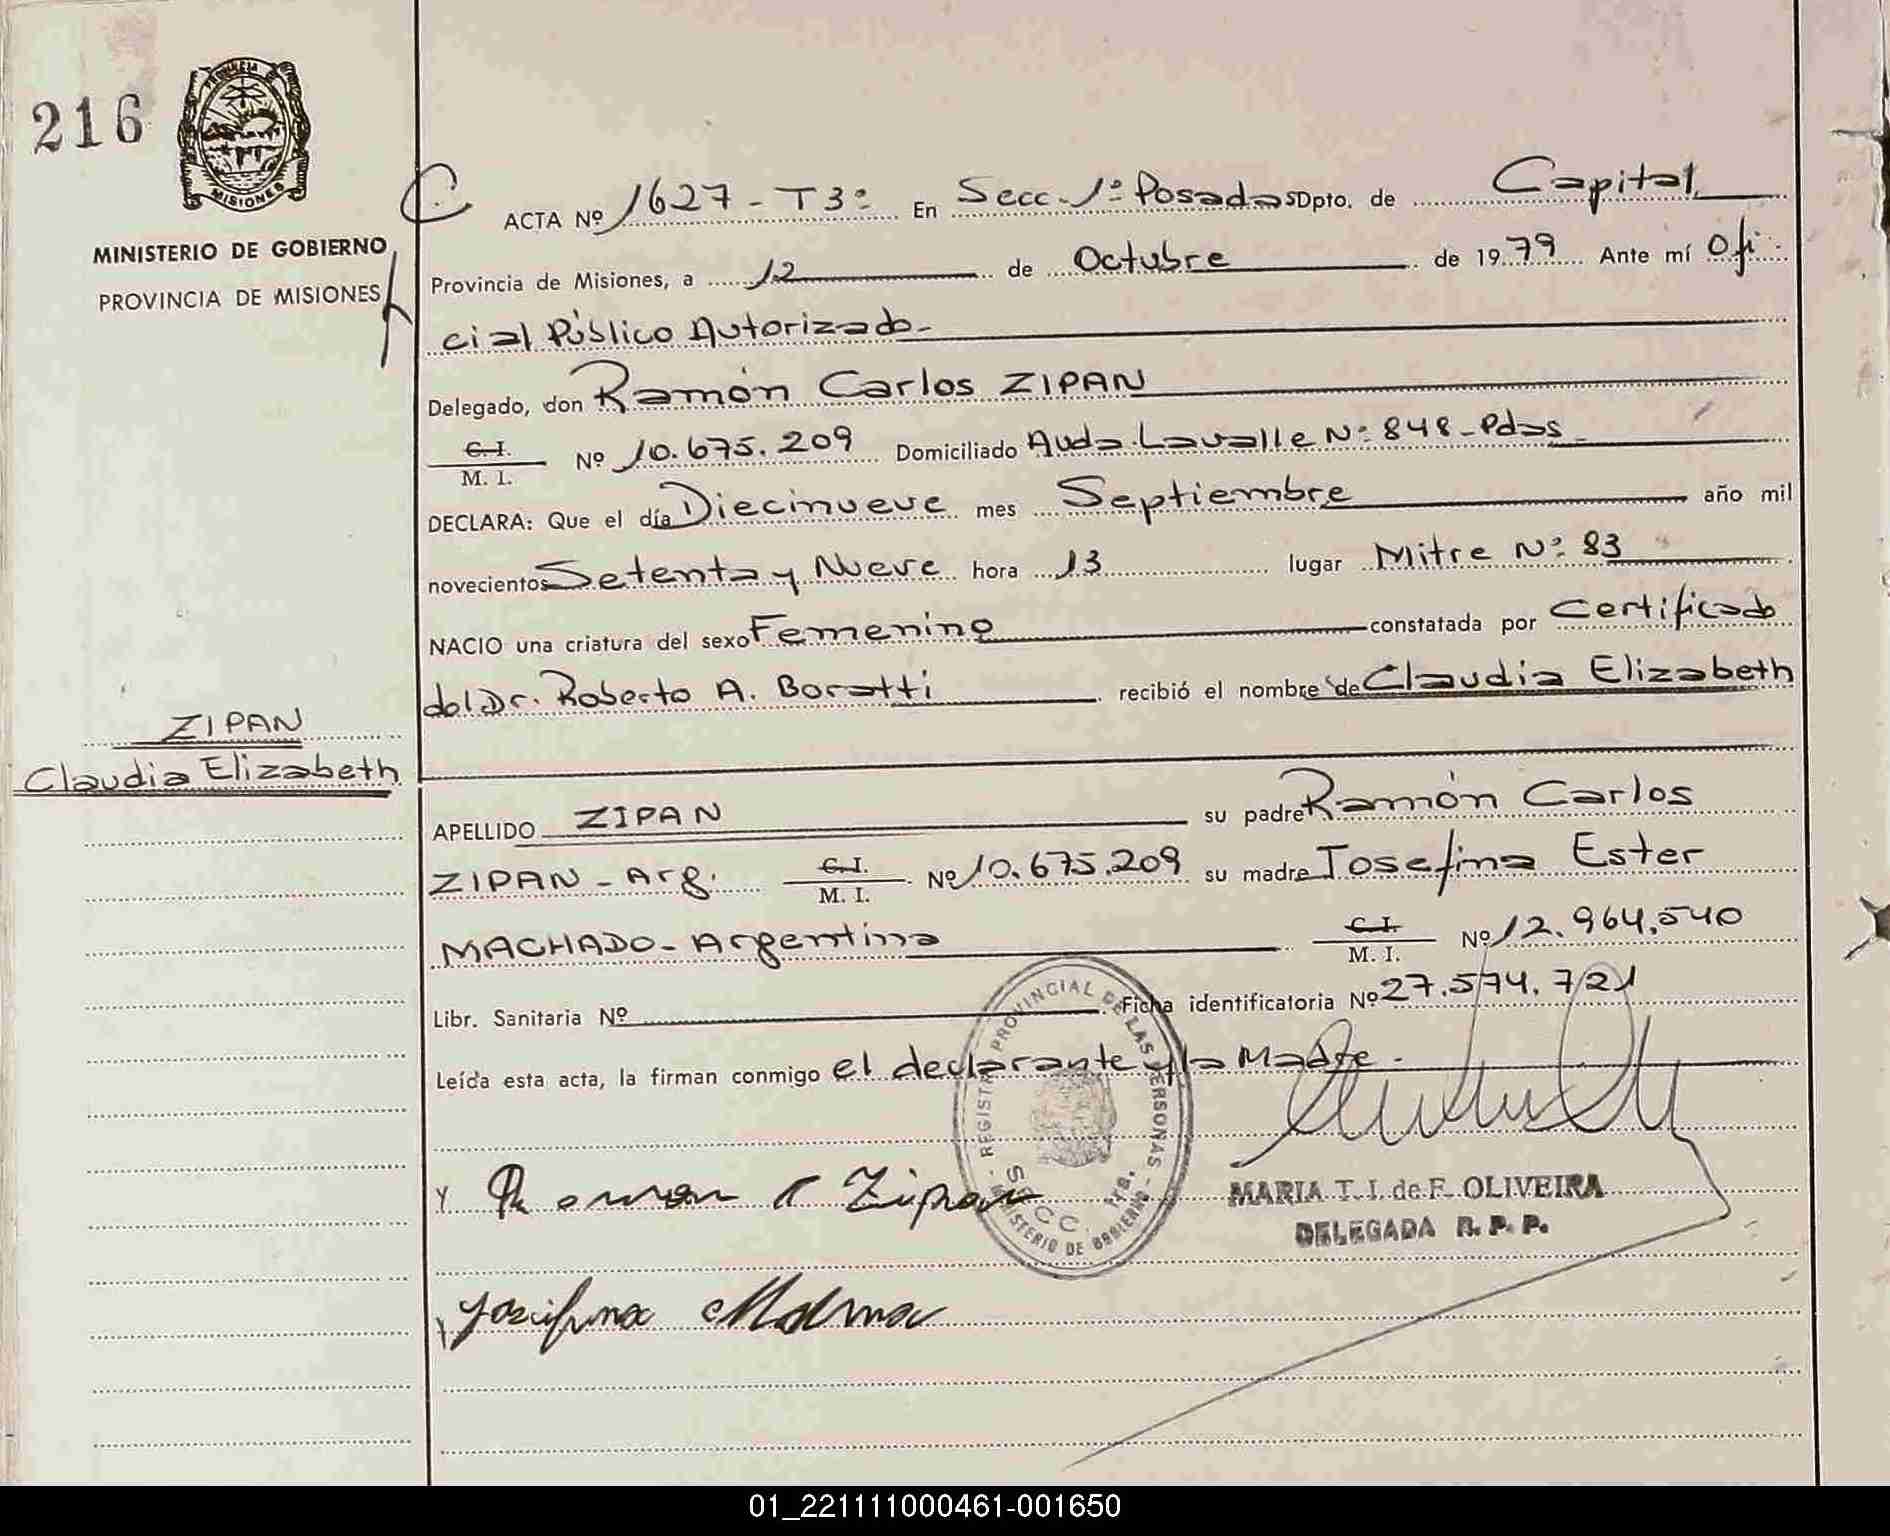 216
PROVINCIA
MISIONES
MINISTERIO DE GOBIERNO
PROVINCIA DE MISIONES
C.
ACTA Nº 1627 - T3º En Secc. 1º Posadas Dpto. de Capital
Provincia de Misiones, a 12 de Octubre de 1979 Ante mí Ofi
cial Público Autorizado -
Delegado, don Ramón Carlos ZIPAN
C.I.
M. I. Nº 10.675.209 Domiciliado Avda. Lavalle Nº 848 - Pdas
DECLARA: Que el día Diecinueve mes Septiembre año mil
novecientos Setenta y Nueve hora 13 lugar Mitre Nº 83
NACIO una criatura del sexo Femenino constatada por Certificado
del Dr. Roberto A. Boratti recibió el nombre de Claudia Elizabeth
ZIPAN
Claudia Elizabeth
APELLIDO ZIPAN su padre Ramón Carlos
ZIPAN - Arg. C.I. M. I. Nº 10.675.209 su madre Josefina Ester
MACHADO - Argentina C.I. M. I. Nº 12.964.540
Libr. Sanitaria Nº Ficha identificatoria Nº 27.574.721
Leída esta acta, la firman conmigo el declarante y la Madre -
REGISTRO PROVINCIAL DE LAS PERSONAS
SECC. 1ra.
MINISTERIO DE GOBIERNO
Y Ramon C Zipan
MARIA T. I. de F. OLIVEIRA
DELEGADA R. P. P.
Josefina
01_221111000461-001650